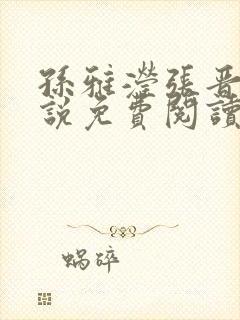 孫雅瀅張晉
說免費閱讀
蝸碎